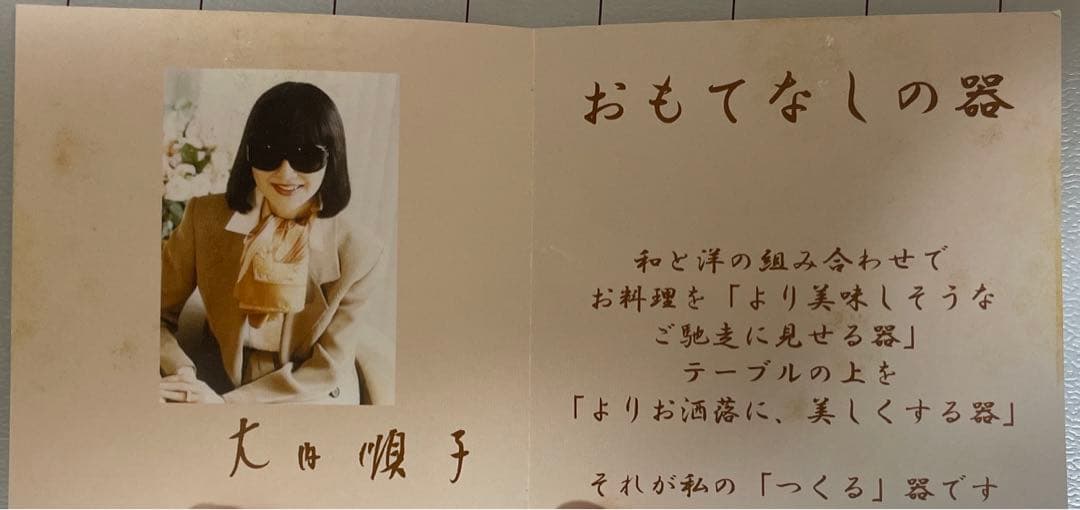 大内順子
おもてなしの器
和と洋の組み合わせで
お料理を「より美味しそうな
ご馳走に見せる器」
テーブルの上を
「よりお洒落に、美しくする器」
それが私の「つくる」器です